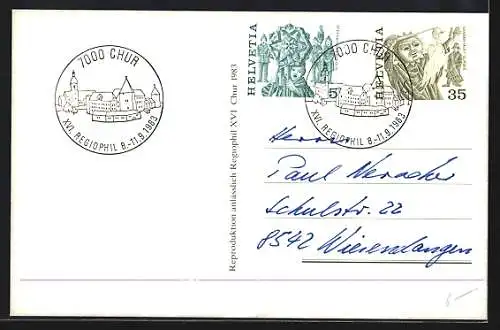 7000 CHUR
XVI. REGIOPHIL 8.-11.9.1983
HELVETIA
5
7000 CHUR
XVI. REGIOPHIL 8.-11.9.1983
HELVETIA
35
Reproduktion anlässlich Regiophil XVI Chur 1983
Herrn
Paul Neracher
Schulstr. 22
8542 Wiesendangen